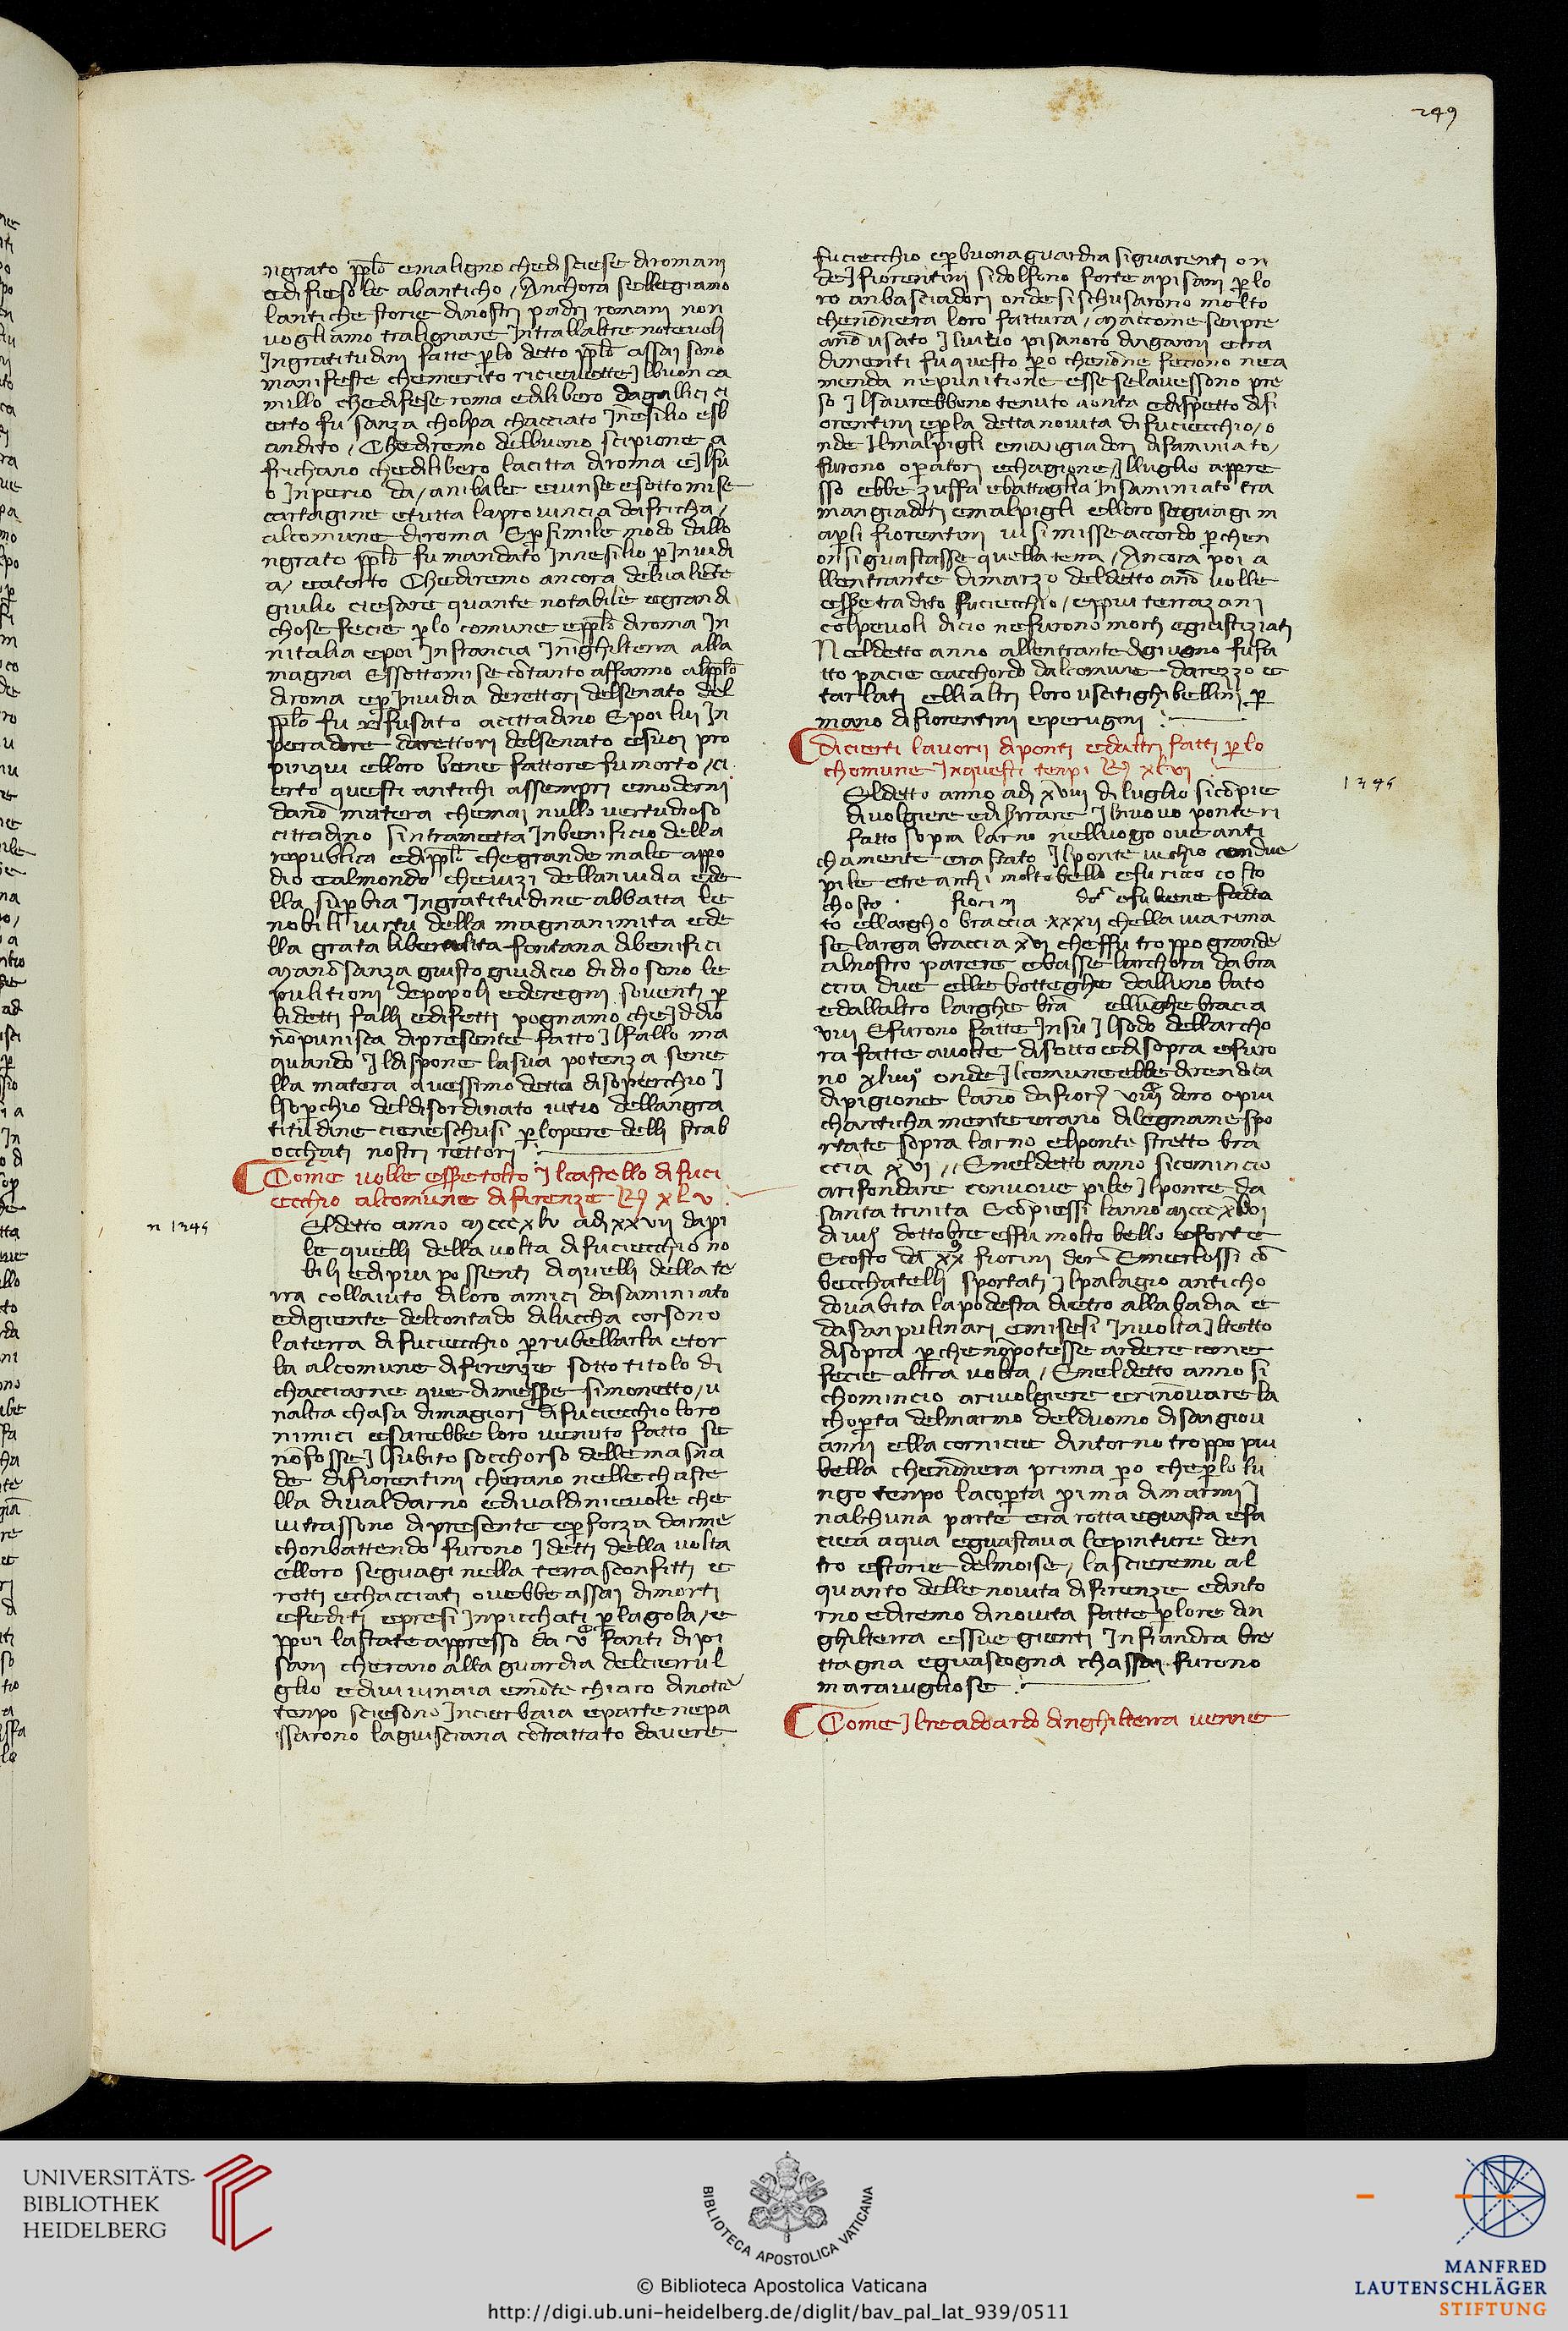 249
ngrato pplō emaligno chedisciese diromani
edifiesole abanticho / Anchora sellegiamo
lantiche storie dinostri padri romani non
vogliamo tralignare Intrallaltre notevoli
Ingratitudini fatte plo detto pplō assai sono
manifeste chemerito ricievette Ilbuon ca
millo chedifese roma edilibero dagallici ci
erto fu sanza cholpa chacciato Inesilio esb
andito / Chediremo delbuono scipione a
frichano chedilibero lacitta diroma eIlsu
o Inperio da / anibale evinse esottomise
cartagine etutta laprovincia dafricha /
alcomune diroma Epsimile modo dallo
ngrato pplō fu mandato Innesilio pInvidi
a / eatorto Chediremo ancora delvaliēte
giulio ciesare quante notabile egrandi
chose fecie plo comune epplō diroma In
nitalia epoi Instancia Inīghilterra alla
magna Essottomise cōtanto affanno alpplō
diroma ep Invidia derettori delsenato del
pplō fu refusato acittadino Epoi lui In
peradore darettori delsenato esuoi pro
pinqui elloro bene fattore fu morto / ci
erto questi antichi assempri emoderni
danō matera chemai nullo vertudioso
cittadino sintrametta Inbenificio della
republica edipplō chegrande male appo
dio ealmondo chevizi dellanvidia ede
lla supbia Ingratitudine abbatta le
nobili virtu della magnanimita ede
lla grata liberalita fontana dibenifici
Manō sanza giusto giudicio didio sono le
pulitioni depopoli ederegni soventi p
lidetti falli edifetti pognamo cheIddio
nōpunisca dipresente fatto Ilfallo ma
quando Ildispone lasua potenza sene
lla matera avessimo detto disoperchio I
lsopchio deldisordinato vitio dellangra
titudine cieneschusi plopere delli strab
occhati nostri rettori
Come volle esse tolto Ilcastello difuci
ecchio alcomune difirenze Rͥ xlv
n 1345
Eldetto anno Mcccxlv adi xxvii dapri
le quelli della volta difuciecchio no
bili edipiu possenti diquelli della te
rra collaiuto diloro amici dasaminiato
edigiente delcontado dilucca corsono
laterra difuciecchio prubellarla etor
la alcomune difirenze sotto titolo di
chacciarne que dimesse simonetto / u
naltra chasa dimagiori difuciecchio loro
nimici esarebbe loro venuto fatto se
nōfosse Ilsubito socchorso dellemasna
de difiorentini cherano nellechaste
lla divaldarno edivaldinievole che
vi trassono dipresente epforza darme
chonbattendo furono Idetti della volta
elloro seguagi nella terra sconfitti e
rotti echacciati ovebbe assai dimorti
efediti epresi Inpicchati plagola / e
ppoi lastate appresso da vͨ fanti dipi
sani cherano alla guardia delcierrul
glio edivivinaia emōte chiaro dinotte
tenpo sciesono Incierbaia eparte nepa
ssarono laguisciana cōtrattato davere
fuciecchio epbuona guardia siguarenti on
de Ifiorentini sidolsono forte apisani plo
ro anbasciadori ondesischusarono molto
chenōnera loro fattura / Maccome senpre
anō usato Ilvitio pisanoro dinganni etra
dimenti fuquesto po chenōne feciono nea
menda nepunitione esseselavessono pre
so Ilsavrebbono tenuto aonta edispetto difi
orentini epla detta novita difuciecchio / o
nde Ilmalpigli emangiadori disaminiato /
furono opatori echagione / Illuglio appre
sso ebbe zuffa ebattaglia Insaminiato tra
mangiadori emalpigli elloro seguagi m
apli fiorentini visimisse accordo pchen
onsiguastasse quella terra / Ancora poi a
llentrante dimarzo deldetto anō volle
esse tradito fuciecchio / eppiu terrazani
colpevoli dicio nefurono morti egiustiziati
Neldetto anno allentrante digiugno fufa
tto pacie eacchordo dalcomune darezzo e
tarlati elli altri loro usciti ghibellini p
mano difiorentini eperugini
Dicierti lavorii diponti edaltri fatti plo
chomune Inquesti tenpi Rͥ xlvi
1345
Eldetto anno adi xviii di luglio sicōpie
divolgiere edisirrare Ilnuovo ponte ri
fatto sopra larno nelluogo ove anti
chamente era stato Ilponte vechio condue
pile etre archi molto bello efu ricco costo
chosto fiorini dō efu bene fatto
to ellargho braccia xxxii chella via rima
se larga braccia xvi cheffu troppo grande
alnostro parere ebasse larchora dabra
ccia due elle botteghe dalluno lato
edallaltro larghe bra ellughe bracia
viii Efurono fatte Insu Ilsodo dellarcho
ra fatte avolte disotto edisopra efuro
no xliiiͦ onde Ilcomune ebbe direndita
dipigione lanō dafiori viiiͨ doro opiu
chanticha mente erano dilegname spo
rtate sopra larno elponte stretto bra
ccia xvi // Eneldetto anno sicomincio
arifondare connuove pile Ilponte da
santa trinita Ecōpiessi lanno Mcccxlvi
diiiii dottobre effu molto bello eforte
Ecosto da xx fiorini dor Emerlossi cō
becchatelli sportati Ilpalagio anticho
dovabita lapodesta dietro allabadia e
dasanpulinari emisesi Involta Iltetto
disopra pche nōpotesse ardere come
fecie altra volta / Eneldetto anno si
chomincio arivolgiere erinōvare la
choperta delmarmo delduomo disangiov
anni ella cornicie dintorno troppo piu
bella chenōnera prima po cheplo lu
ngo tenpo lacopta prima dimarmi I
nalchuna parte era rotta eguasta efa
ciea aqua eguastava lepinture den
tro estorie delmoise / lascieremo al
quanto delle novita difirenze edinto
rno ediremo dinovita fatte plore din
ghilterra essue gienti Infiandra bre
ttagna eguascogna chassai furono
maravigliose
Come Ilreadoardo dinghilterra venne
UNIVERSITÄTS-
BIBLIOTHEK
HEIDELBERG
BIBLIOTECA APOSTOLICA VATICANA
MANFRED
LAUTENSCHLÄGER
STIFTUNG
© Biblioteca Apostolica Vaticana
http://digi.ub.uni-heidelberg.de/diglit/bav_pal_lat_939/0511